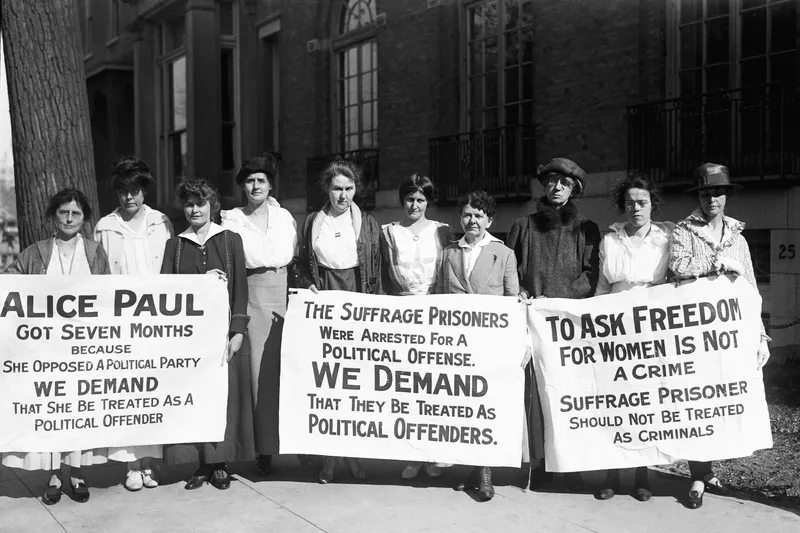 ALICE PAUL
GOT SEVEN MONTHS
BECAUSE
SHE OPPOSED A POLITICAL PARTY
WE DEMAND
THAT SHE BE TREATED AS A
POLITICAL OFFENDER
THE SUFFRAGE PRISONERS
WERE ARRESTED FOR A
POLITICAL OFFENSE.
WE DEMAND
THAT THEY BE TREATED AS
POLITICAL OFFENDERS.
TO ASK FREEDOM
FOR WOMEN IS NOT
A CRIME
SUFFRAGE PRISONER
SHOULD NOT BE TREATED
AS CRIMINALS
25